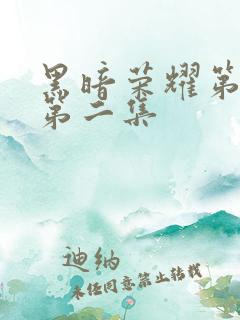 黑暗荣耀第
第二集
迪纳
未经同意禁止转载